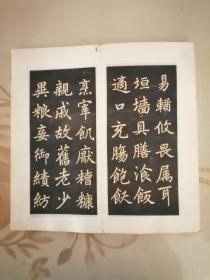 易輶攸畏属耳
垣墻具膳飡飯
適口充腸飽飫
烹宰飢厭糟糠
親戚故舊老少
異粮妾御績紡